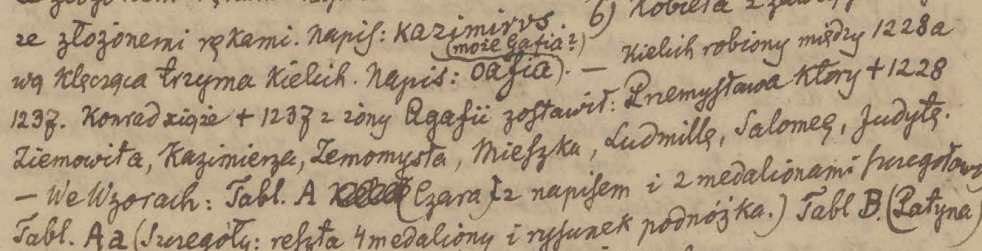 ze złożonemi rękami. Napis: Kazimirvs. 6) Kobieta z
(może Gafia?)
wą klęcząca trzyma Kielich. Napis: Oafia). — Kielich robiony między 1228 a
1237. Konrad xiąże + 1237 z żony Agafii zostawił: Przemysława który + 1228
Ziemowita, Kazimierza, Zemomysła, Mieszka, Ludmillę, Salomeę, Judytę.
— We Wzorach: Tabl. A (Czara) z napisem i 2 medalionami szczegółowo
Tabl. Aa (Szczegóły: reszta 4 medaliony i rysunek podnóżka.) Tabl B. (Patyna)